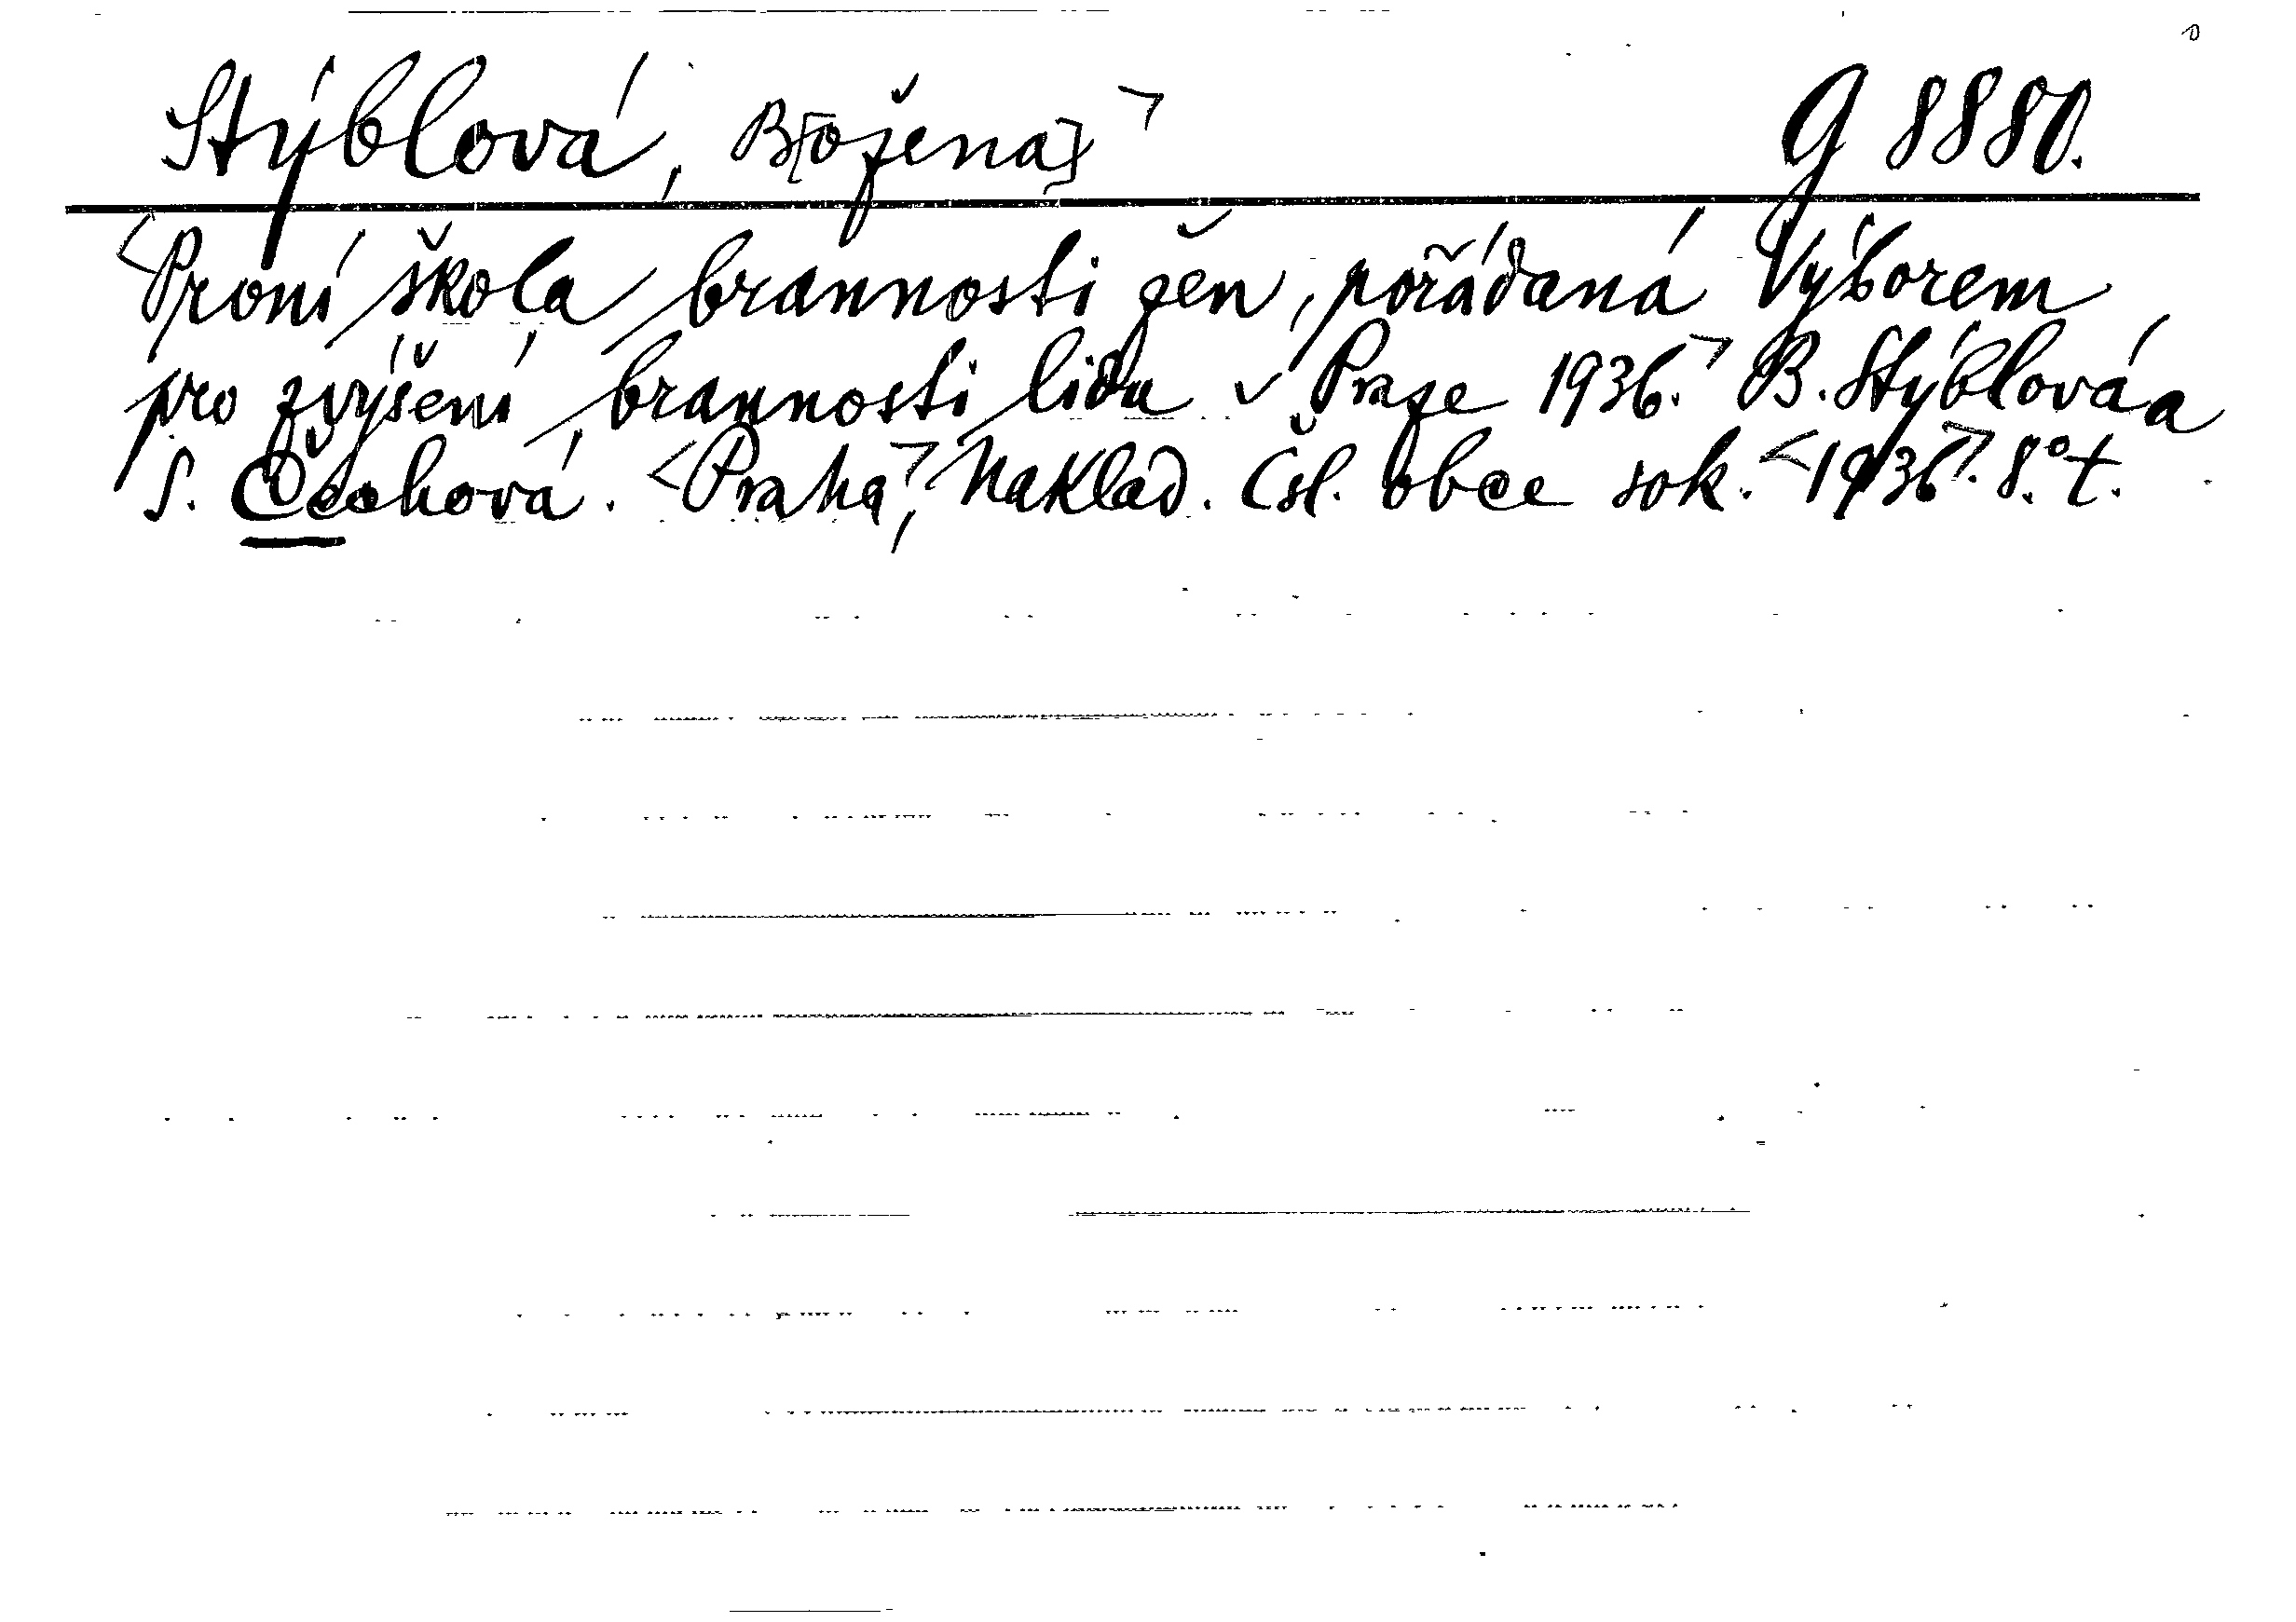 Stýblová, B[ožena] ⌝ g 8880.
<První škola brannosti žen, pořádaná Výborem
pro zvýšení brannosti lidu v Praze 1936.⌝ B. Stýblová a
S. Čechová. <Praha⌝, Naklad. Čsl. obce sok. <1936⌝. 8.° t.